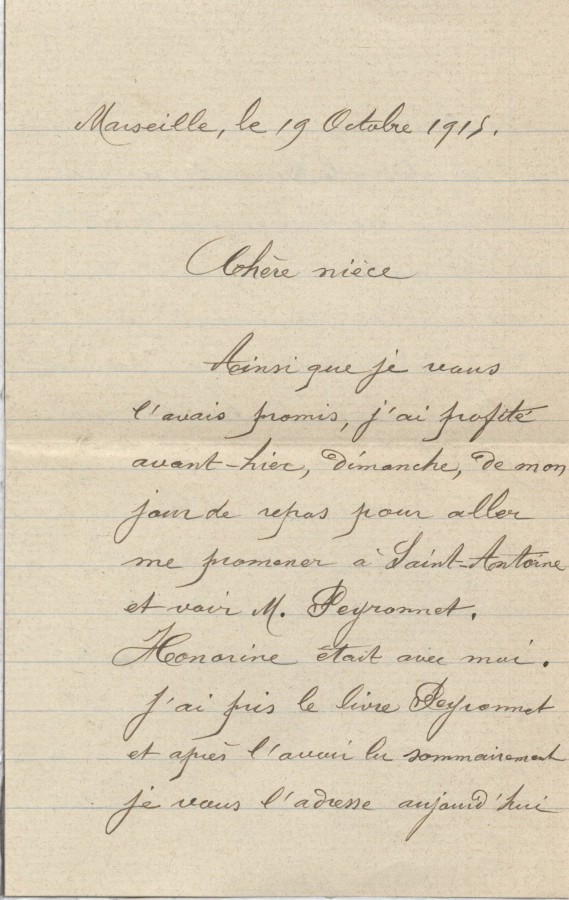 Marseille, le 19 Octobre 1915.
Chère nièce
Ainsi que je vous
l'avais promis, j'ai profité
avant-hier, dimanche, de mon
jour de repos pour aller
me promener à Saint-Antoine
et voir M. Peyronnet.
Honorine était avec moi.
J'ai pris le livre Peyronnet
et après l'avoir lu sommairement
je vous l'adresse aujourd'hui